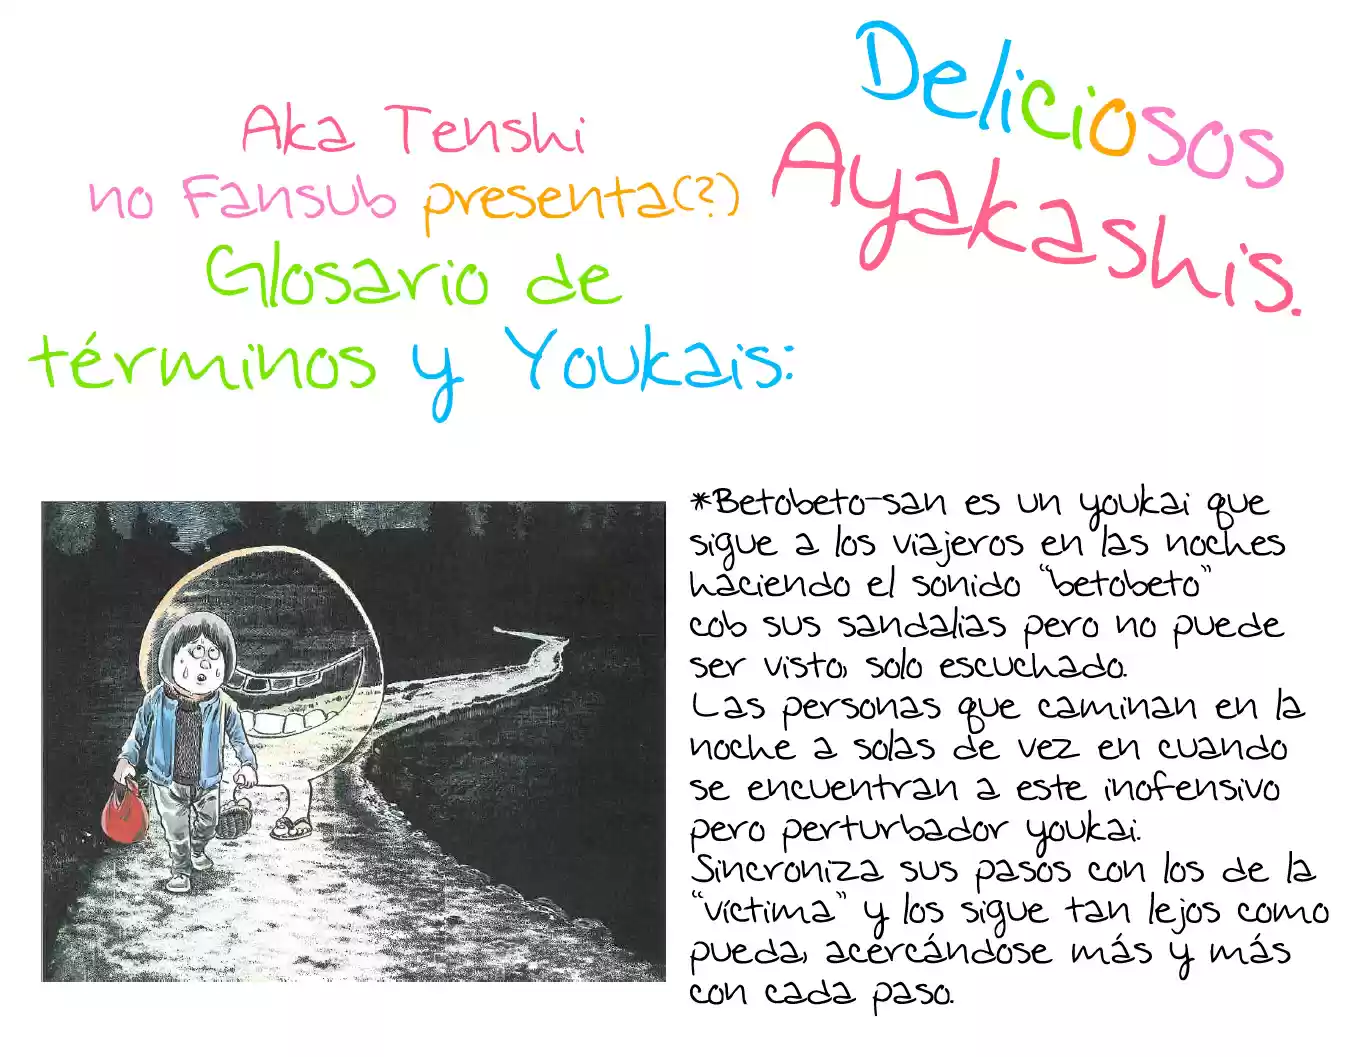 Aka Tenshi
no Fansub presenta(?)
Glosario de
términos y Youkais:
Deliciosos
Ayakashis.
*Betobeto-san es un youkai que
sigue a los viajeros en las noches
haciendo el sonido "betobeto"
cob sus sandalias pero no puede
ser visto, solo escuchado.
Las personas que caminan en la
noche a solas de vez en cuando
se encuentran a este inofensivo
pero perturbador youkai.
Sincroniza sus pasos con los de la
"víctima" y los sigue tan lejos como
pueda, acercándose más y más
con cada paso.